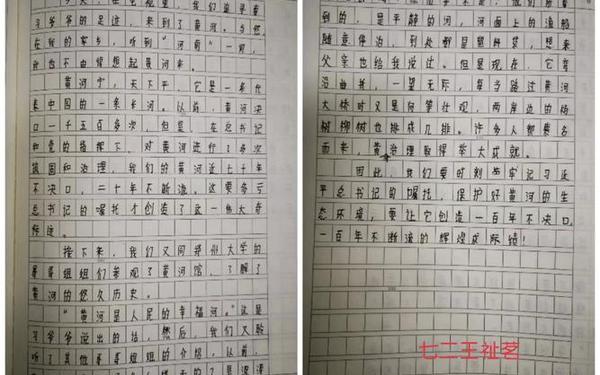 习爷爷的足迹，来到了黄河。当然
在我的家乡，听到“河南”一词，
我也不由得想起黄河来。
黄河宁，天下平，它是一条代
表中国的一条长河。以前，黄河决
口一千五百多次，但是，在总书记
和党的指挥下，对黄河进行了多次
巩固和治理，我们的黄河近七十年
不决口，二十年不断流，这要多亏
总书记的嘱托才创造了这一伟大奇
接下来，我们又同郑州大学的
哥哥姐姐们参观了黄河馆，了解了
黄河的悠久历史。
“黄河是人民的幸福河。”这是
习爷爷说出的话，然后，我们又聆
听了其他哥哥姐姐的介绍，以前，
到的，是平静的河，河面上的渔船
随意停泊，到处都是塑料袋，想来
父亲也给我说过。但是现在，它弯
沿曲折，一望无际，每当路过黄河
大桥时又是何等壮观，两岸边的杨
树柳树也排成几排。许多人都慕名
而来，黄河治理取得举大成就。
因此，我们要时刻牢记习近
平总书记的嘱托，保护好黄河的生
态环境，要让它创造一百年不决口，
一百年不断流的辉煌成际绩！
七二王祉茗